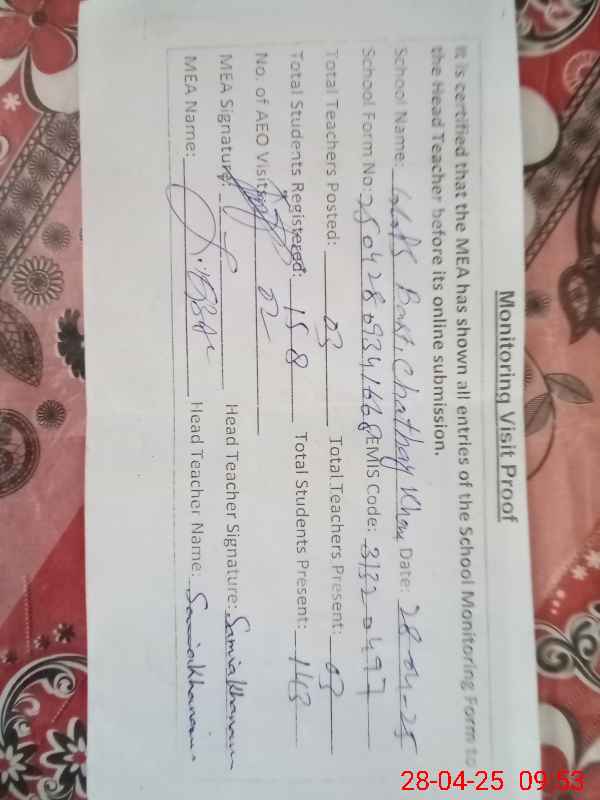 Monitoring Visit Proof
It is certified that the MEA has shown all entries of the School Monitoring Form to
the Head Teacher before its online submission.
School Name: Basti Chattay Khan Date: 28-04-25
School Form No: 250428093416 EMIS Code: 31320497
Total Teachers Posted: 03 Total Teachers Present: 03
Total Students Registered: 158 Total Students Present: 143
No. of AEO Visits: 02
MEA Signature: Head Teacher Signature: Samia Khanam
MEA Name: Head Teacher Name: Samia Khanam
28-04-25 09:53